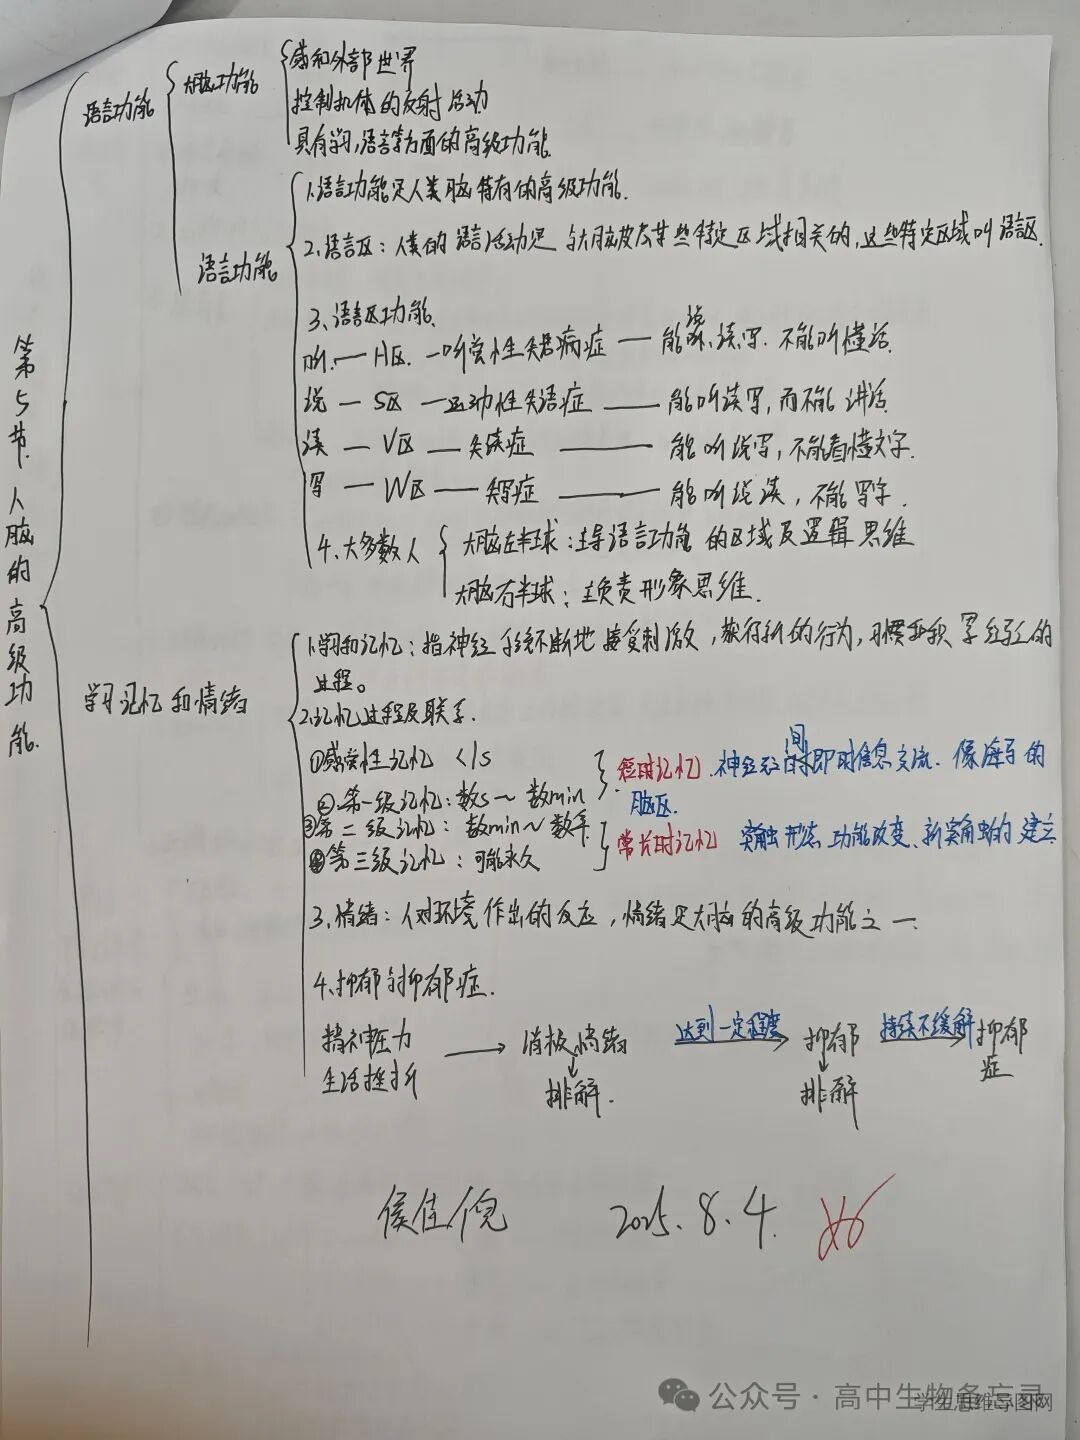 第5节 人脑的高级功能.
语言功能
大脑功能
感知外部世界
控制机体的反射活动
具有学习,语言等方面的高级功能.
语言功能
1.语言功能是人类脑特有的高级功能.
2.语言区：人类的语言活动是与大脑皮层某些特定区域相关的,这些特定区域叫语言区.
3、语言区功能.
听.— H区. — 听觉性失语病症 — 能说、读、写. 不能听懂话.
说 — S区 — 运动性失语症 — 能听读写,而不能讲话.
读 — V区 — 失读症 — 能听说写,不能看懂文字.
写 — W区 — 失写症 — 能听说读,不能写字.
4、大多数人
大脑左半球：主导语言功能的区域及逻辑思维
大脑右半球：主负责形象思维.
学习记忆和情绪
1.学习和记忆：指神经系统不断地接受刺激,获得新的行为,习惯和积累经验的
过程。
2.记忆过程及联系.
①感觉性记忆 <1s
②第一级记忆：数s~数min
短时记忆.神经元间即时信息交流.像海马的
脑区.
③第二级记忆：数min~数年
④第三级记忆：可能永久
长时记忆 突触形态、功能改变、新突触的建立
3、情绪：人对环境作出的反应,情绪是大脑的高级功能之一.
4、抑郁与抑郁症.
精神压力
生活挫折
消极情绪
排解.
达到一定程度
抑郁
排解
持续不缓解
抑郁症
侯佳倪 2025.8.4.
公众号·高中生物备忘录
学生思维导图网